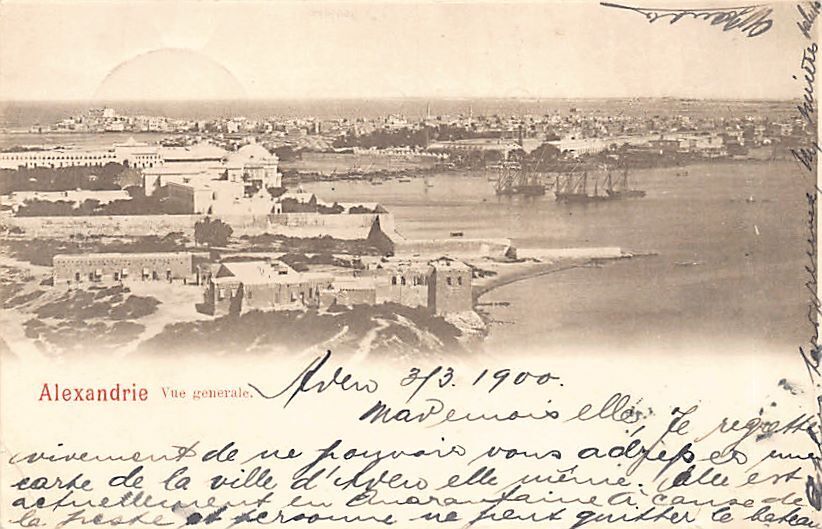 Alexandrie Vue generale.
Aden 3/3. 1900.
Mademoiselle, Je regrette
vivement de ne pouvoir vous adresser une
carte de la ville d'Aden elle même. Elle est
actuellement en Quarantaine à cause de
la peste et personne ne peut quitter le bateau